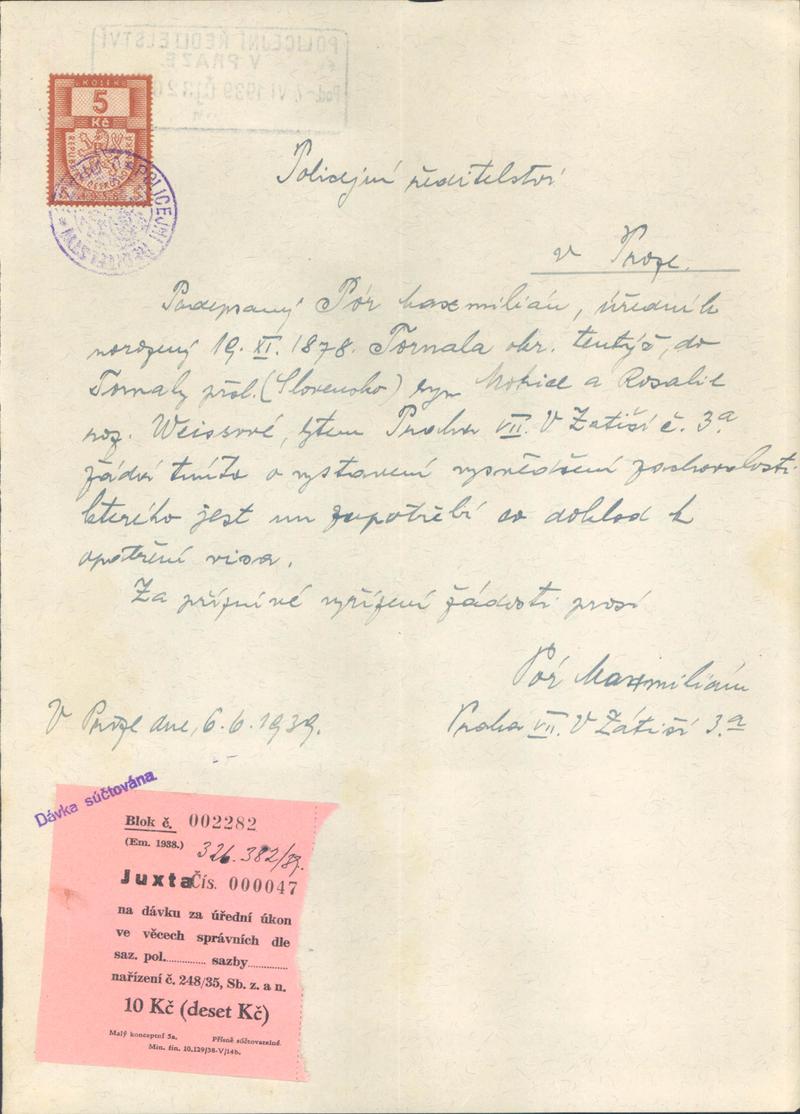 KOLEK
5
Kč
POLICEJNÍ ŘEDITELSTVÍ
V PRAZE
1939
POLICEJNÍ ŘEDITELSTVÍ
Policejní ředitelství
v Praze.
Podepsaný Pór Maxmilián, úředník
narozený 19. XI. 1878. Tornala okr. tentýž, do
Tornaly přísl. (Slovensko) syn Morice a Rosalie
roz. Weissové, bytem Praha VII. V Zátiší č. 3a
žádá tímto o vystavení vysvědčení zachovalosti
kterého jest mu zapotřebí co doklad k
opatření visa.
Za příznivé vyřízení žádosti prosí
Pór Maxmilián
V Praze dne, 6.6.1939.
Praha VII. V Zátiší 3.a
Dávka súčtována.
Blok č. 002282
(Em. 1938.)
326.382/39.
Juxta Čís. 000047
na dávku za úřední úkon
ve věcech správních dle
saz. pol. .......... sazby ..........
nařízení č. 248/35, Sb. z. a n.
10 Kč (deset Kč)
Malý konceptní 5a. Přísně súčtovatelné.
Min. fin. 10.129/38-V/14b.